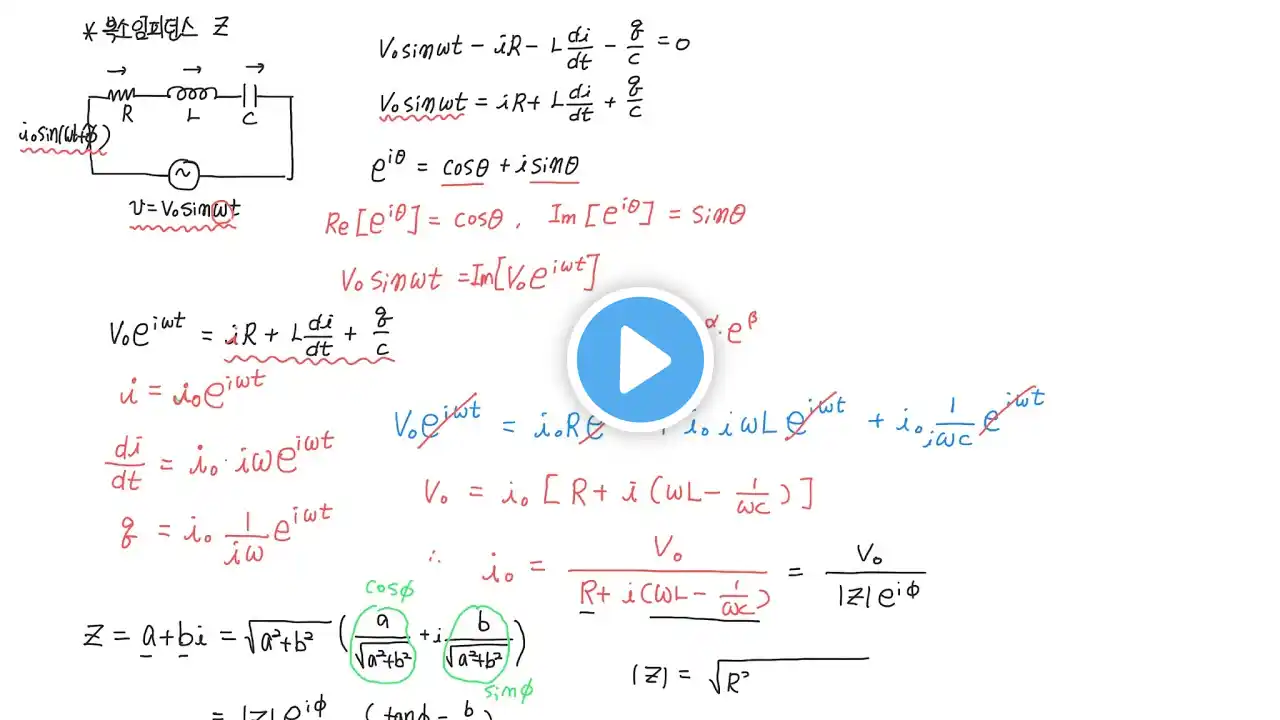 * 복소임피던스 Z
R L C
i₀sin(ωt+φ)
v=V₀sinωt
V₀sinωt - iR - L di/dt - q/c = 0
V₀sinωt = iR + L di/dt + q/c
e^{iθ} = cosθ + i sinθ
Re[e^{iθ}] = cosθ, Im[e^{iθ}] = sinθ
V₀sinωt = Im[V₀e^{iωt}]
V₀e^{iωt} = iR + L di/dt + q/c
i = i₀e^{iωt}
di/dt = i₀·iωe^{iωt}
q = i₀ 1/iω e^{iωt}
α · e^β
V₀e^{iωt} = i₀Re + i₀iωLe^{iωt} + i₀ 1/iωc e^{iωt}
V₀ = i₀[R + i(ωL - 1/ωc)]
∴ i₀ = V₀/(R + i(ωL - 1/ωc)) = V₀/(|Z|e^{iφ})
cosφ
Z = a+bi = √(a²+b²) (a/√(a²+b²) + i b/√(a²+b²))
sinφ
|Z| = √R²
= |Z|e^{iφ} (tanφ = b